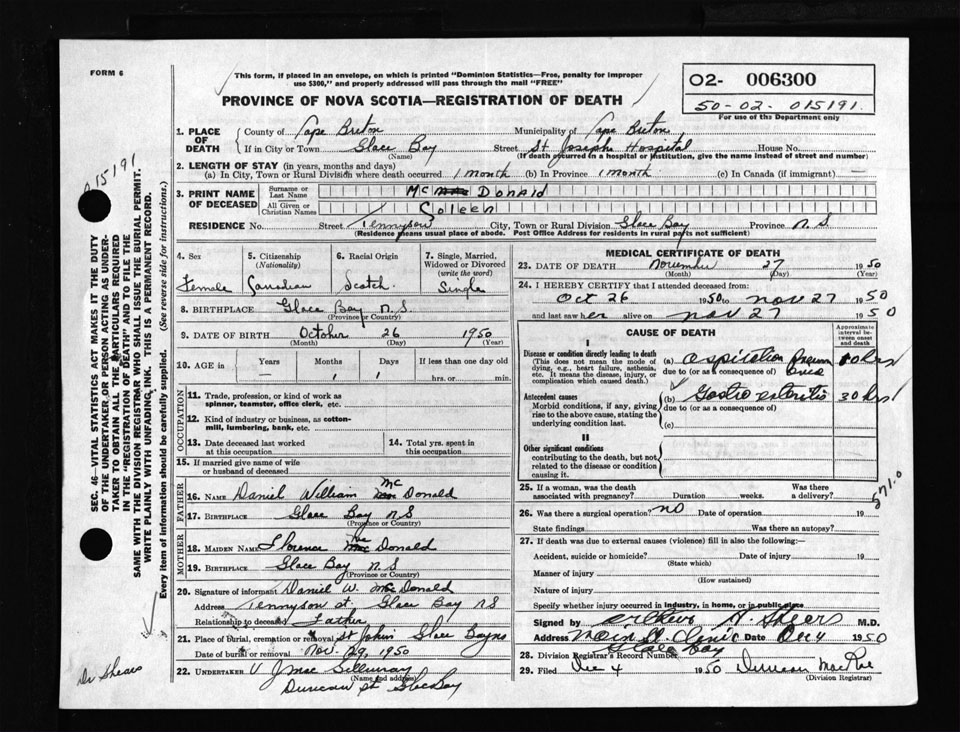 FORM 6
This form, if placed in an envelope, on which is printed "Dominion Statistics—Free, penalty for improper
use $300," and properly addressed will pass through the mail "FREE"
PROVINCE OF NOVA SCOTIA—REGISTRATION OF DEATH
02- 006300
50-02-015191.
For use of the Department only
015191
SEC. 46—VITAL STATISTICS ACT MAKES IT THE DUTY
OF THE UNDERTAKER OR PERSON ACTING AS UNDER-
TAKER TO OBTAIN ALL THE PARTICULARS REQUIRED
IN THE "REGISTRATION OF DEATH" AND TO FILE THE
SAME WITH THE DIVISION REGISTRAR WHO SHALL ISSUE THE BURIAL PERMIT.
WRITE PLAINLY WITH UNFADING INK. THIS IS A PERMANENT RECORD.
Every item of information should be carefully supplied. (See reverse side for instructions.)
Dr Shears
1. PLACE OF DEATH
County of Cape Breton Municipality of Cape Breton
If in City or Town Glace Bay Street St Josephs Hospital House No.
(Name) (If death occurred in a hospital or institution, give the name instead of street and number)
2. LENGTH OF STAY (in years, months and days)
(a) In City, Town or Rural Division where death occurred 1 month (b) In Province 1 month (c) In Canada (if immigrant) —
3. PRINT NAME OF DECEASED
Surname or Last Name Mc Donald
All Given or Christian Names Coleen
RESIDENCE No. Street Tennyson City, Town or Rural Division Glace Bay Province N.S
(Residence means usual place of abode. Post Office Address for residents in rural parts not sufficient)
4. Sex
Female
5. Citizenship
(Nationality)
Canadian
6. Racial Origin
Scotch
7. Single, Married,
Widowed or Divorced
(write the word)
Single
8. BIRTHPLACE Glace Bay N.S
(Province or Country)
9. DATE OF BIRTH October 26 1950
(Month) (Day) (Year)
10. AGE Years Months Days If less than one day old
— 1 1 hrs. or min.
OCCUPATION
11. Trade, profession, or kind of work as
spinner, teamster, office clerk, etc.
12. Kind of industry or business, as cotton-
mill, lumbering, bank, etc.
13. Date deceased last worked
at this occupation
14. Total yrs. spent in
this occupation
15. If married give name of wife
or husband of deceased
FATHER
16. NAME Daniel William Mc Donald
17. BIRTHPLACE Glace Bay N S
(Province or Country)
MOTHER
18. MAIDEN NAME Florence Mc Donald
19. BIRTHPLACE Glace Bay N. S
(Province or Country)
20. Signature of informant Daniel W. Mc Donald
Address Tennyson st. Glace Bay NS
Relationship to deceased Father
21. Place of Burial, cremation or removal St Johns Glace Bay NS
Date of burial or removal Nov. 29, 1950
22. UNDERTAKER V J Mac Gillivray
(Name and address)
Duncan st Glace Bay
MEDICAL CERTIFICATE OF DEATH
23. DATE OF DEATH November 27 1950
(Month) (Day) (Year)
24. I HEREBY CERTIFY that I attended deceased from:
Oct 26 1950 to Nov 27 1950
and last saw her alive on Nov 27 1950
CAUSE OF DEATH
Approximate interval between onset and death
I
Disease or condition directly leading to death
(This does not mean the mode of dying, e.g., heart failure, asthenia, etc. It means the disease, injury, or complication which caused death.)
(a) aspiration Pneumonia 10 hrs
due to (or as a consequence of)
Antecedent causes
Morbid conditions, if any, giving rise to the above cause, stating the underlying condition last.
(b) Gastro enteritis 30 hrs
due to (or as a consequence of)
(c)
II
Other significant conditions
contributing to the death, but not related to the disease or condition causing it.
571.0
25. If a woman, was the death Was there
associated with pregnancy? Duration weeks. a delivery?
26. Was there a surgical operation? no Date of operation 19
State findings Was there an autopsy?
27. If death was due to external causes (violence) fill in also the following:—
Accident, suicide or homicide? Date of injury 19
(State which)
Manner of injury
(How sustained)
Nature of injury
Specify whether injury occurred in industry, in home, or in public place
Signed by H. Shears M.D.
Address Main St. Clinic Date Dec 4 1950
Glace Bay
28. Division Registrar's Record Number
29. Filed Dec 4 1950 Duncan MacRae
(Division Registrar)